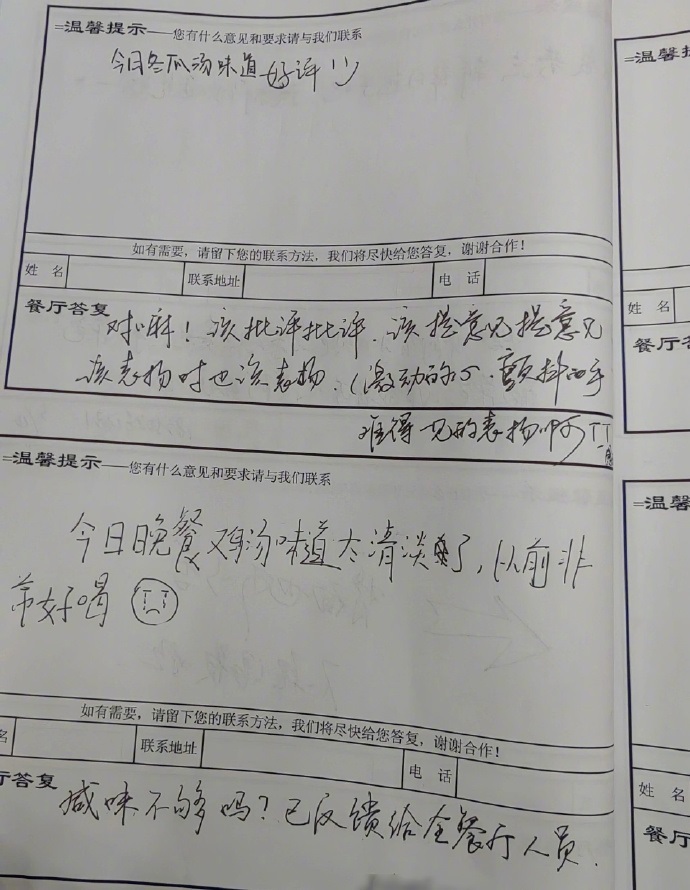 =温馨提示——您有什么意见和要求请与我们联系
今日冬瓜汤味道好评!!
如有需要，请留下您的联系方法，我们将尽快给您答复，谢谢合作！
姓 名 联系地址 电 话
餐厅答复 对嘛！该批评批评.该提意见提意见
该表扬时也该表扬.(激动的心.颤抖的手
难得一见的表扬啊TT
=温馨提示——您有什么意见和要求请与我们联系
今日晚餐鸡汤味道太清淡了，从前非
常好喝
如有需要，请留下您的联系方法，我们将尽快给您答复，谢谢合作！
名 联系地址 电 话
厅答复 咸味不够吗？已反馈给全餐厅人员.
=温馨提
姓 名
餐厅答
=温馨
姓 名
餐厅